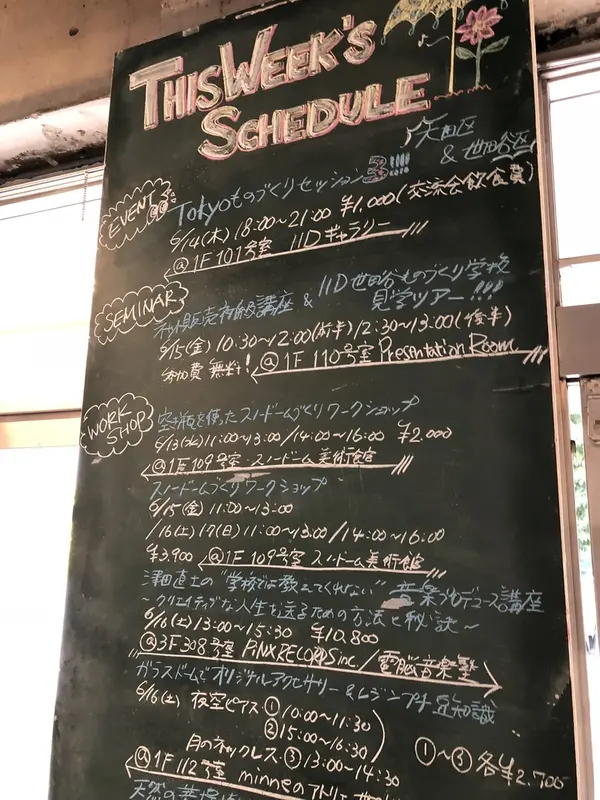 THIS WEEK'S
SCHEDULE
EVENT
Tokyoものづくりセッション3!!!!
& 世田谷区
6/14(木) 18:00~21:00 ¥1,000(交流会飲食費)
@1F 101号室 IIDギャラリー
SEMINAR
ネット販売初級講座 & IID世田谷ものづくり学校
見学ツアー!!!
6/15(金) 10:30~12:00(前半) 12:30~13:00(後半)
参加費 無料! @1F 110号室 Presentation Room
WORK
SHOP
空き瓶を使ったスノードームづくりワークショップ
6/13(水) 11:00~13:00/14:00~16:00 ¥2,000
@1F 109号室 スノードーム美術館
スノードームづくりワークショップ
6/15(金) 11:00~13:00
/16(土) 17(日) 11:00~13:00/14:00~16:00
¥3,900 @1F 109号室 スノードーム美術館
津田直士の"学校では教えてくれない"音楽プロデュース講座
~クリエイティブな人生を送るための方法と秘訣~
6/16(土) 13:00~15:30 ¥10,800
@3F 308号室 PINX RECORDS inc./電脳音楽塾
ガラスドームでオリジナルアクセサリー&レジンプチ豆知識
6/16(土) 夜空ピアス ① 10:00~11:30
② 15:00~16:30
月のネックレス ③ 13:00~14:30
①~③ 各¥2,700
@1F 112号室 minneのアトリエ
天然の